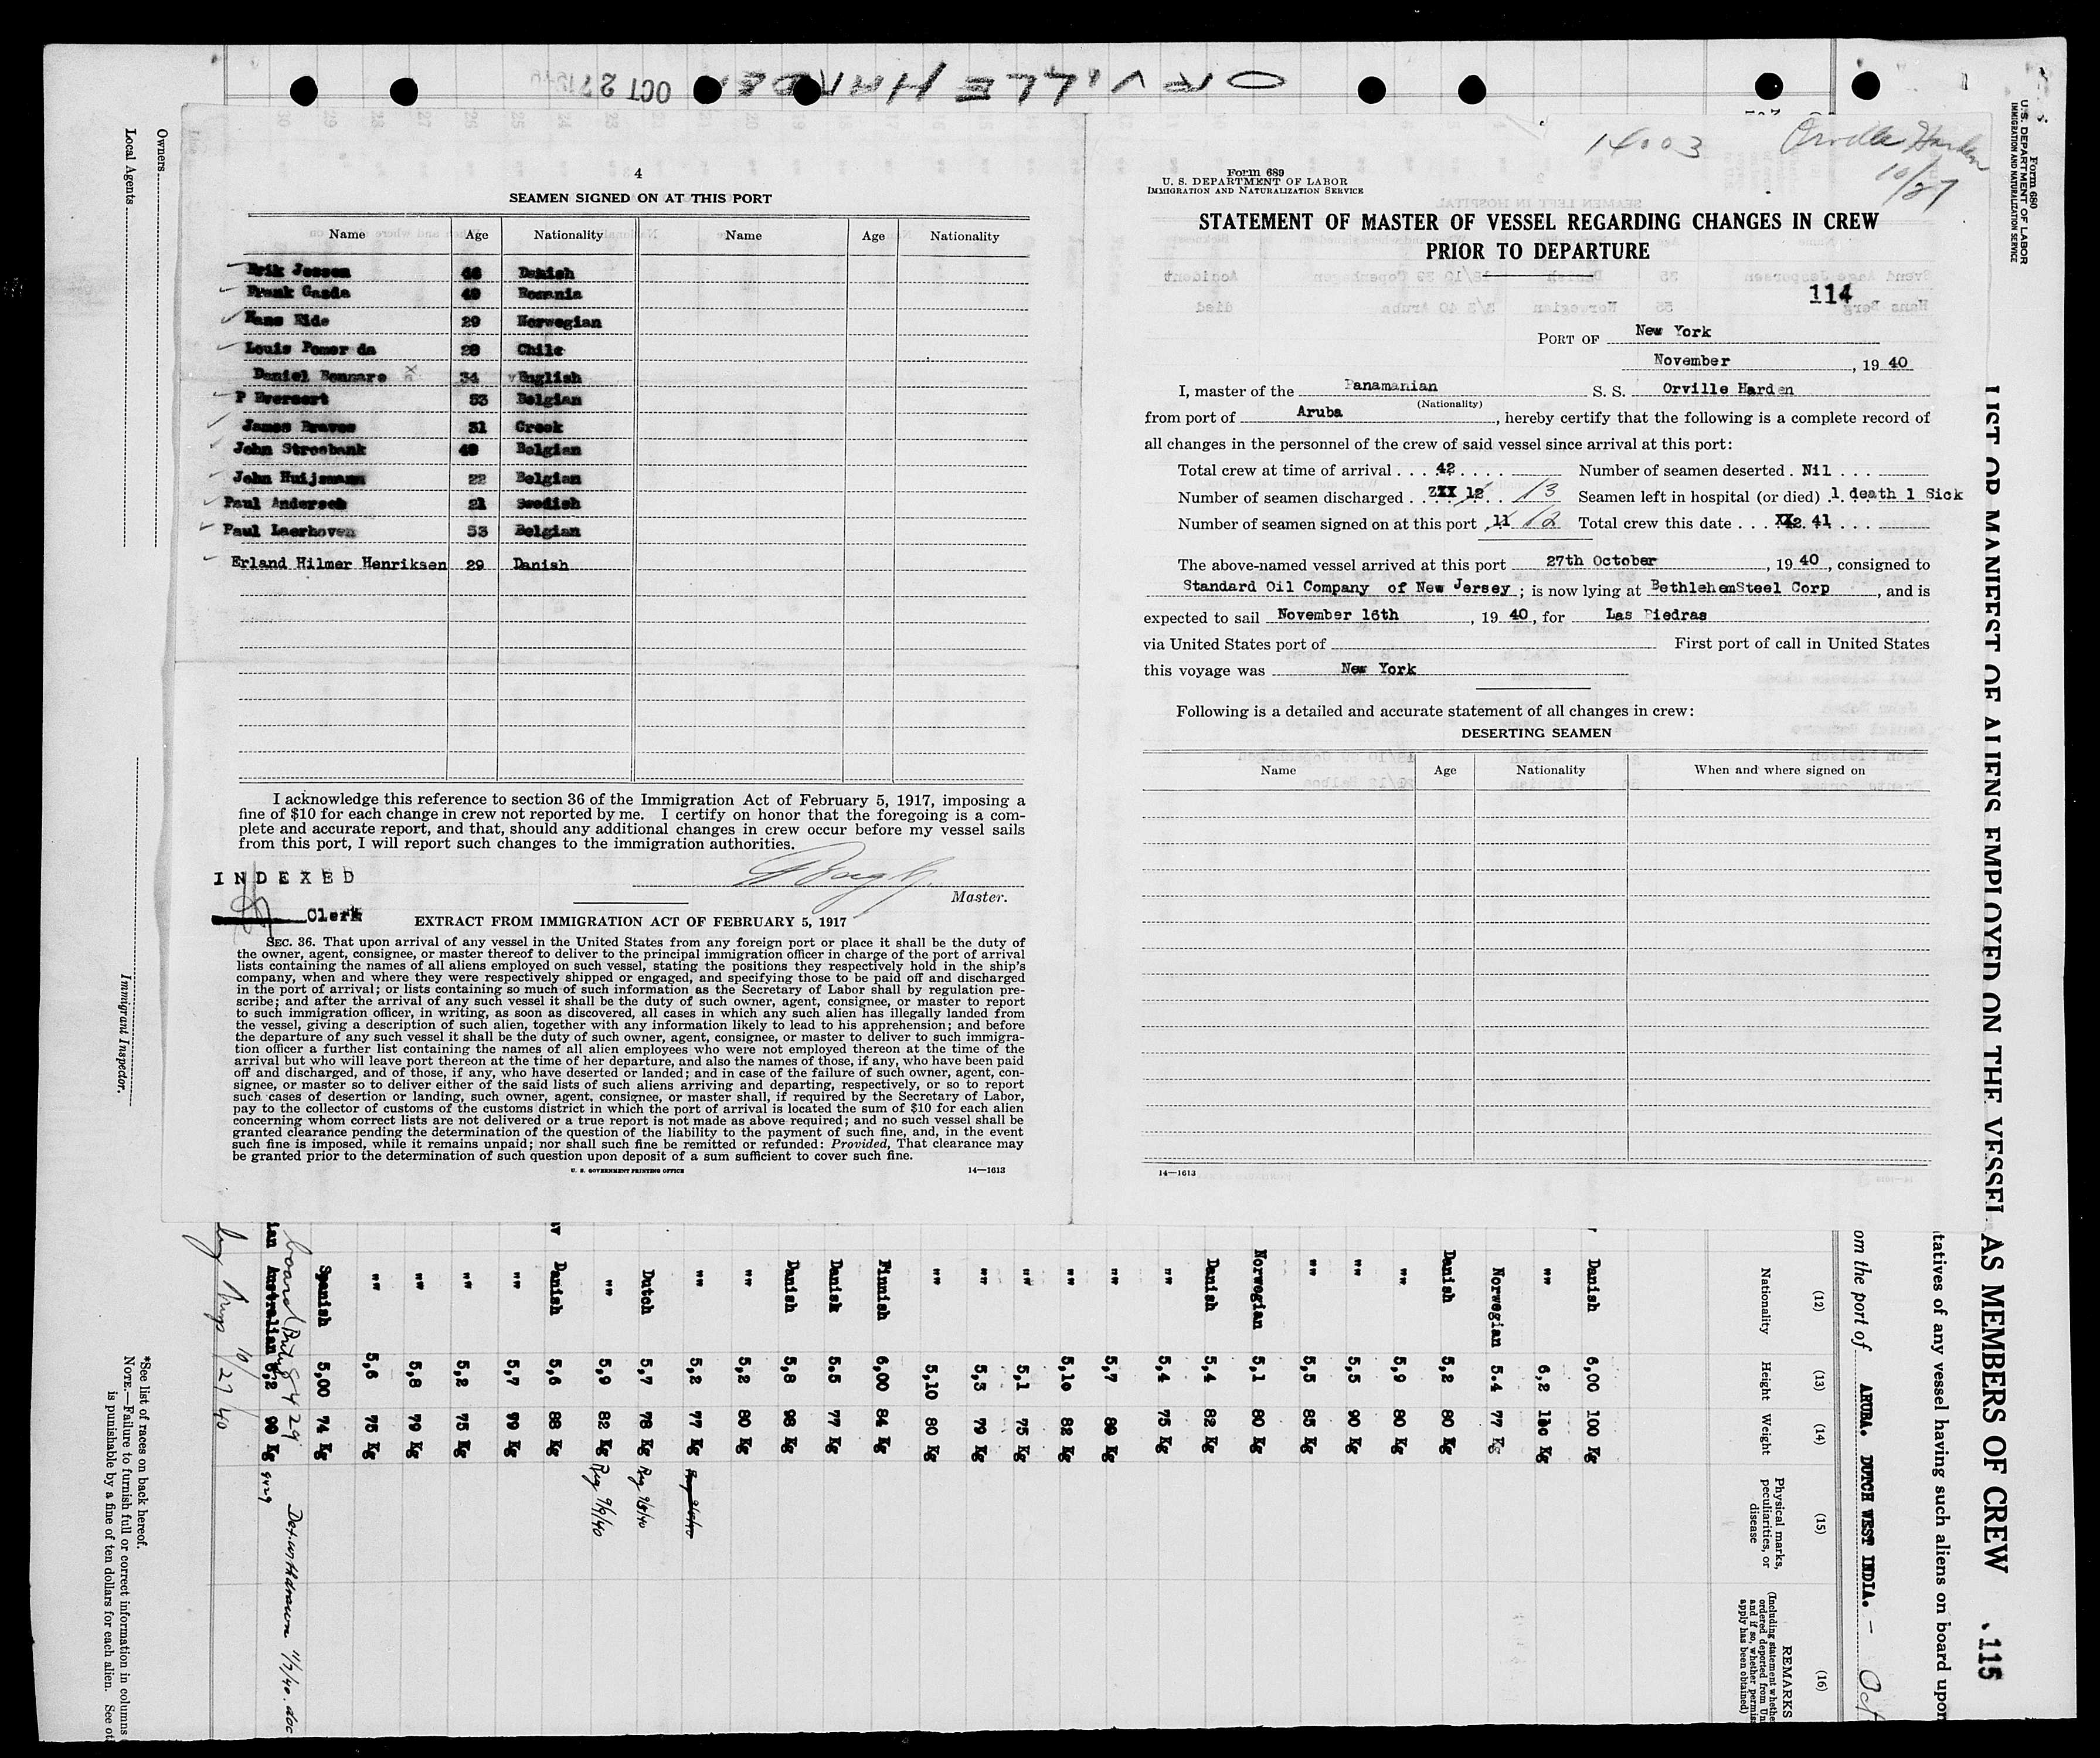 ORVILLE HARDEN
OCT 27 1940
4
SEAMEN SIGNED ON AT THIS PORT
Name Age Nationality Name Age Nationality
Erik Jessen 46 Danish
Frank Gasda 49 Romania
Hans Eide 29 Norwegian
Louis 28 Chile
Daniel Bonnare 34 English
P Eversert 53 Belgian
James 31 Greek
John Stroobank 49 Belgian
John Huijsmann 22 Belgian
Paul Andersch 21 Swedish
Paul Laerhoven 53 Belgian
Erland Hilmer Henriksen 29 Danish
I acknowledge this reference to section 36 of the Immigration Act of February 5, 1917, imposing a
fine of $10 for each change in crew not reported by me. I certify on honor that the foregoing is a com-
plete and accurate report, and that, should any additional changes in crew occur before my vessel sails
from this port, I will report such changes to the immigration authorities.
INDEXED
Master.
Clerk
EXTRACT FROM IMMIGRATION ACT OF FEBRUARY 5, 1917
SEC. 36. That upon arrival of any vessel in the United States from any foreign port or place it shall be the duty of
the owner, agent, consignee, or master thereof to deliver to the principal immigration officer in charge of the port of arrival
lists containing the names of all aliens employed on such vessel, stating the positions they respectively hold in the ship's
company, when and where they were respectively shipped or engaged, and specifying those to be paid off and discharged
in the port of arrival; or lists containing so much of such information as the Secretary of Labor shall by regulation pre-
scribe; and after the arrival of any such vessel it shall be the duty of such owner, agent, consignee, or master to report
to such immigration officer, in writing, as soon as discovered, all cases in which any such alien has illegally landed from
the vessel, giving a description of such alien, together with any information likely to lead to his apprehension; and before
the departure of any such vessel it shall be the duty of such owner, agent, consignee, or master to deliver to such immigra-
tion officer a further list containing the names of all alien employees who were not employed thereon at the time of the
arrival but who will leave port thereon at the time of her departure, and also the names of those, if any, who have been paid
off and discharged, and of those, if any, who have deserted or landed; and in case of the failure of such owner, agent, con-
signee, or master so to deliver either of the said lists of such aliens arriving and departing, respectively, or so to report
such cases of desertion or landing, such owner, agent, consignee, or master shall, if required by the Secretary of Labor,
pay to the collector of customs of the customs district in which the port of arrival is located the sum of $10 for each alien
concerning whom correct lists are not delivered or a true report is not made as above required; and no such vessel shall be
granted clearance pending the determination of the question of the liability to the payment of such fine, and, in the event
such fine is imposed, while it remains unpaid; nor shall such fine be remitted or refunded: Provided, That clearance may
be granted prior to the determination of such question upon deposit of a sum sufficient to cover such fine.
U. S. GOVERNMENT PRINTING OFFICE 14—1613
14003
Orville Harden
10/27
Form 689
U. S. DEPARTMENT OF LABOR
IMMIGRATION AND NATURALIZATION SERVICE
STATEMENT OF MASTER OF VESSEL REGARDING CHANGES IN CREW
PRIOR TO DEPARTURE
114
PORT OF New York
November, 19 40
I, master of the Panamanian S. S. Orville Harden
(Nationality)
from port of Aruba, hereby certify that the following is a complete record of
all changes in the personnel of the crew of said vessel since arrival at this port:
Total crew at time of arrival . . . 42 . . . . Number of seamen deserted . Nil . . .
Number of seamen discharged . . 12 . . 13 Seamen left in hospital (or died) 1 death 1 Sick
Number of seamen signed on at this port 11 12 Total crew this date . . . 41 . . .
The above-named vessel arrived at this port 27th October, 19 40, consigned to
Standard Oil Company of New Jersey; is now lying at BethlehemSteel Corp, and is
expected to sail November 16th, 19 40, for Las Piedras
via United States port of First port of call in United States
this voyage was New York
Following is a detailed and accurate statement of all changes in crew:
DESERTING SEAMEN
Name Age Nationality When and where signed on
14—1613
Form 680
U. S. DEPARTMENT OF LABOR
IMMIGRATION AND NATURALIZATION SERVICE
LIST OR MANIFEST OF ALIENS EMPLOYED ON THE VESSEL AS MEMBERS OF CREW
115
tatives of any vessel having such aliens on board upon
om the port of ARUBA. DUTCH WEST INDIA. - Oct
(12) (13) (14) (15) (16)
Nationality Height Weight Physical marks, peculiarities, or disease REMARKS
Danish 6,00 100 Kg
"" 6,2 Kg
Norwegian 5.4 77 Kg
Danish 5,2 80 Kg
"" 5,9 80 Kg
"" 5,5 90 Kg
"" 5,5 85 Kg
Norwegian 5,1 80 Kg
Danish 5,4 82 Kg
"" 5,4 75 Kg
"" 5,7 80 Kg
"" 5,10 82 Kg
"" 5,1 75 Kg
"" 5,3 79 Kg
"" 5,10 80 Kg
Finnish 6,00 84 Kg
Danish 5.5 77 Kg
Danish 5,8 98 Kg
"" 5,2 80 Kg
"" 5,2 77 Kg
Dutch 5,7 78 Kg
"" 5,9 82 Kg Reg 9/9/40
Danish 5,6 88 Kg
"" 5,7 79 Kg
"" 5,2 75 Kg
"" 5,8 79 Kg
"" 5,6 75 Kg
Spanish 5,00 74 Kg
ian Australian 6,2 90 Kg 9429
10/27/40
Owners
Local Agents
Immigrant Inspector.
*See list of races on back hereof.
NOTE.—Failure to furnish full or correct information in columns
is punishable by a fine of ten dollars for each alien. See ot